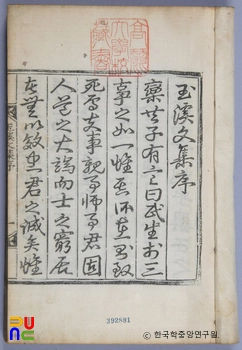 玉溪文集序
欒共子有言曰民生於三
事之如一惟其所在則致
死焉夫事親事師事君固
人道之大端而士之窮居
者無以效忠君之誠矣惟
392891
한국학중앙연구원